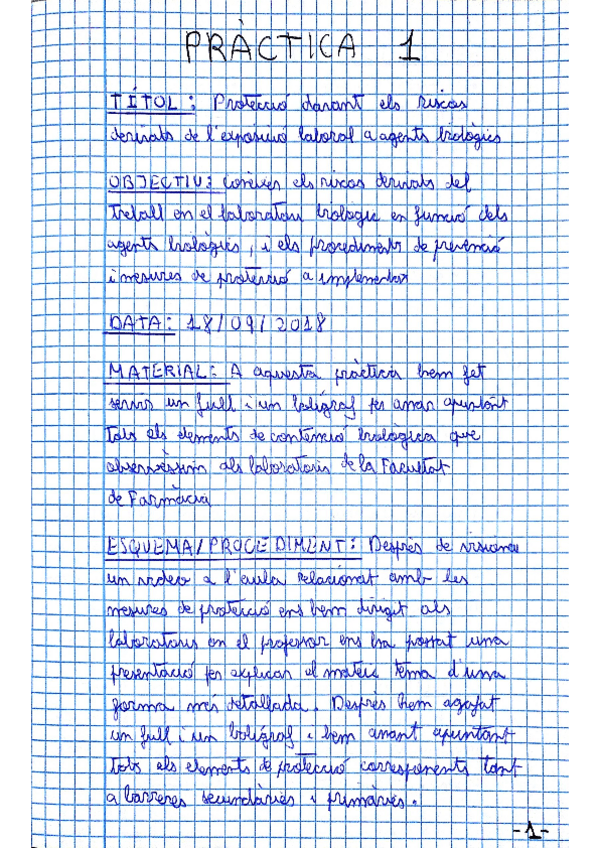 PRÀCTICA 1
TÍTOL: Protecció davant els riscos
derivats de l'exposició laboral a agents biològics
OBJECTIU: Conèixer els riscos derivats del
treball en el laboratori biològic en funció dels
agents biològics, i els procediments de prevenció
i mesures de protecció a implementar
DATA: 18/09/2018
MATERIAL: A aquesta pràctica hem fet
servir un full i un bolígraf per anar apuntant
tots els elements de contenció biològica que
observéssim als laboratoris de la Facultat
de Farmàcia
ESQUEMA/PROCEDIMENT: Després de visionar
un vídeo a l'aula relacionat amb les
mesures de protecció ens hem dirigit als
laboratoris on el professor ens ha portat una
presentació per explicar el mateix tema d'una
forma més detallada. Després hem agafat
un full i un bolígraf i hem anant apuntant
tots els elements de protecció corresponents tant
a barreres secundàries i primàries.
-1-